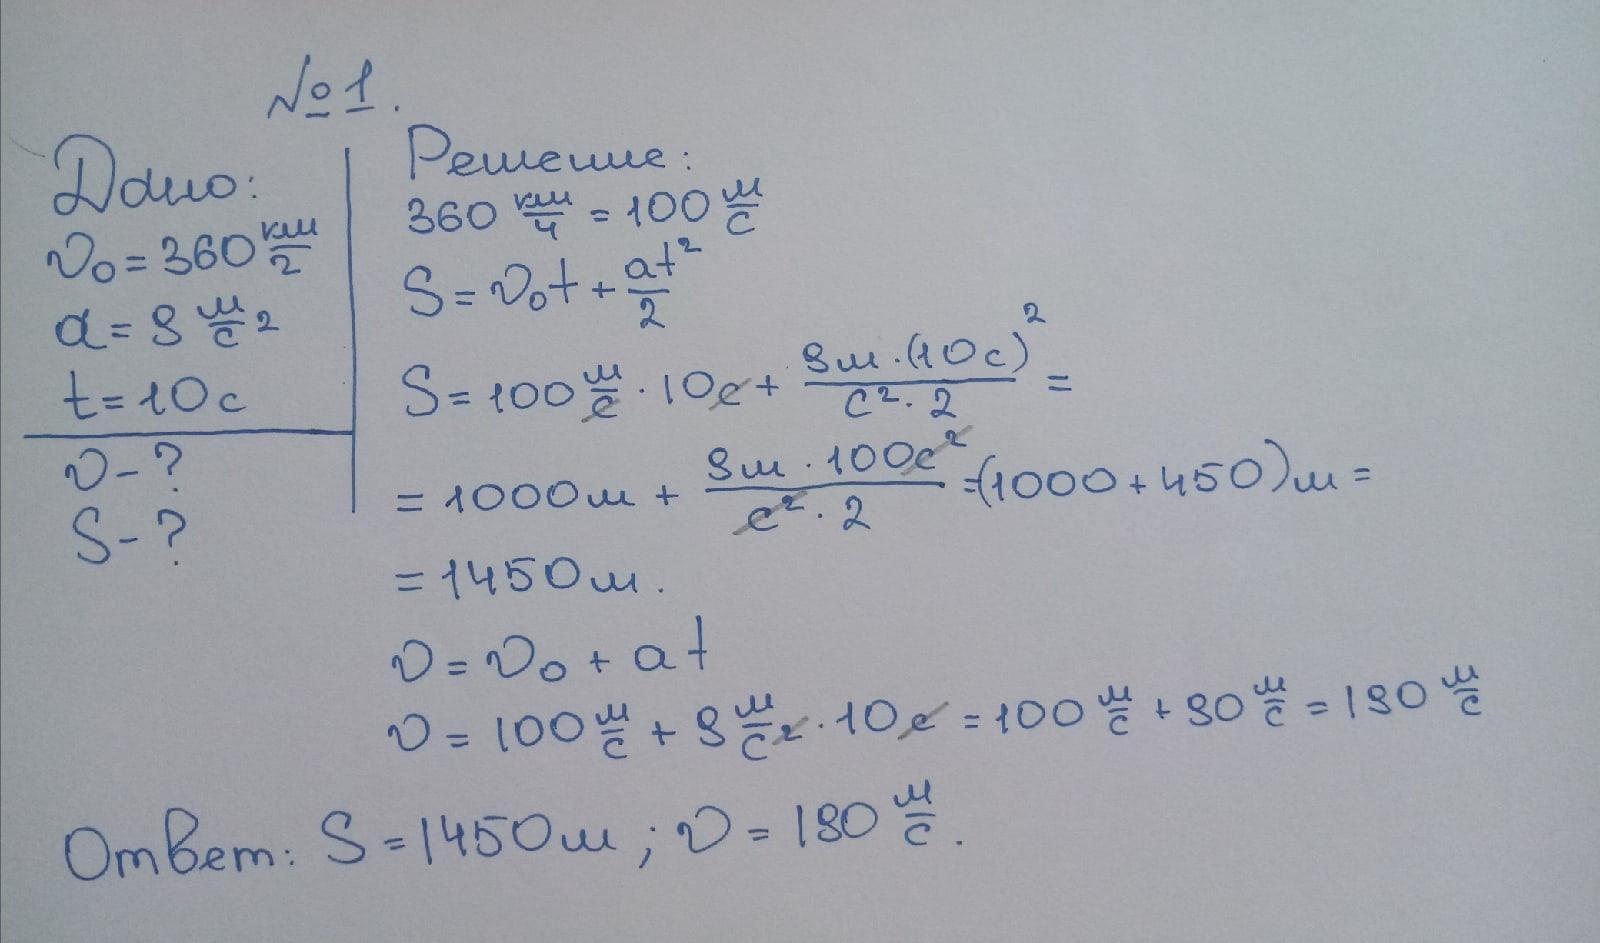 №1.
Дано:
v₀ = 360 км/ч
a = 9 м/с²
t = 10 с
v - ?
S - ?
Решение:
360 км/ч = 100 м/с
S = v₀t + at²/2
S = 100 м/с · 10с + 9м · (10с)²/с² · 2 =
= 1000м + 9м · 100с²/с² · 2 = (1000 + 450)м =
= 1450м.
v = v₀ + at
v = 100 м/с + 9 м/с² · 10с = 100 м/с + 90 м/с = 190 м/с
Ответ: S = 1450м; v = 190 м/с.